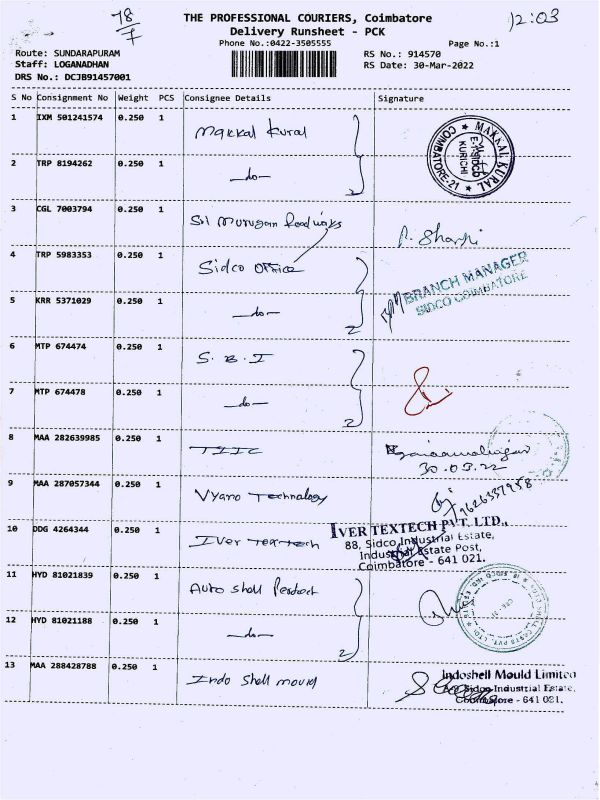 78/7
12:03
THE PROFESSIONAL COURIERS, Coimbatore
Delivery Runsheet - PCK
Phone No.:0422-3505555
Page No.:1
Route: SUNDARAPURAM
Staff: LOGANADHAN
DRS No.: DCJB91457001
RS No.: 914570
RS Date: 30-Mar-2022
S No Consignment No Weight PCS Consignee Details Signature
1 IXM 501241574 0.250 1 Makkal Kural
MAKKAL KURAL
E-1 SIDCO
KURICHI
COIMBATORE-21
2 TRP 8194262 0.250 1 —do— 2
3 CGL 7003794 0.250 1 Sri Murugan
4 TRP 5983353 0.250 1 Sidco Office
BRANCH MANAGER
SIDCO COIMBATORE
5 KRR 5371029 0.250 1 —do— 2
6 MTP 674474 0.250 1 S. B. I
7 MTP 674478 0.250 1 —do— 2
8 MAA 282639985 0.250 1 TIIC
30.03.22
9 MAA 287057344 0.250 1 Vyano Technology
9626337958
10 DDG 4264344 0.250 1 Iver Textech
IVER TEXTECH PVT. LTD.,
88, Sidco Industrial Estate,
Industrial Estate Post,
Coimbatore - 641 021.
11 HYD 81021839 0.250 1 Auto shell Product
12 HYD 81021188 0.250 1 —do— 2
13 MAA 288428788 0.250 1 Indo Shell mould
Indoshell Mould Limited
Sidco Industrial Estate,
Coimbatore - 641 021.